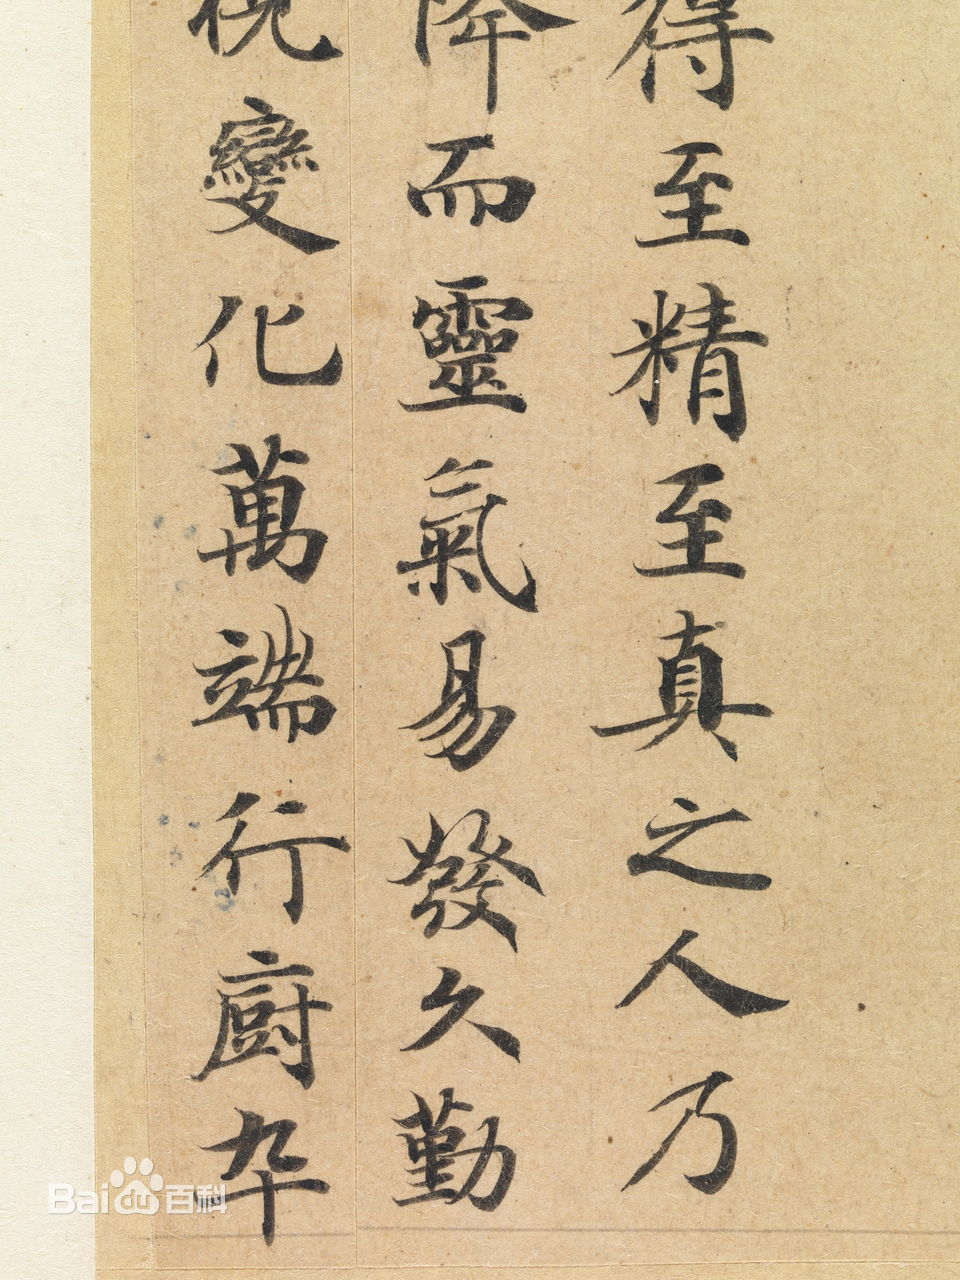 得至精至真之人乃
降而靈氣易發久勤
変化萬端行厨卒
Bai du 百科